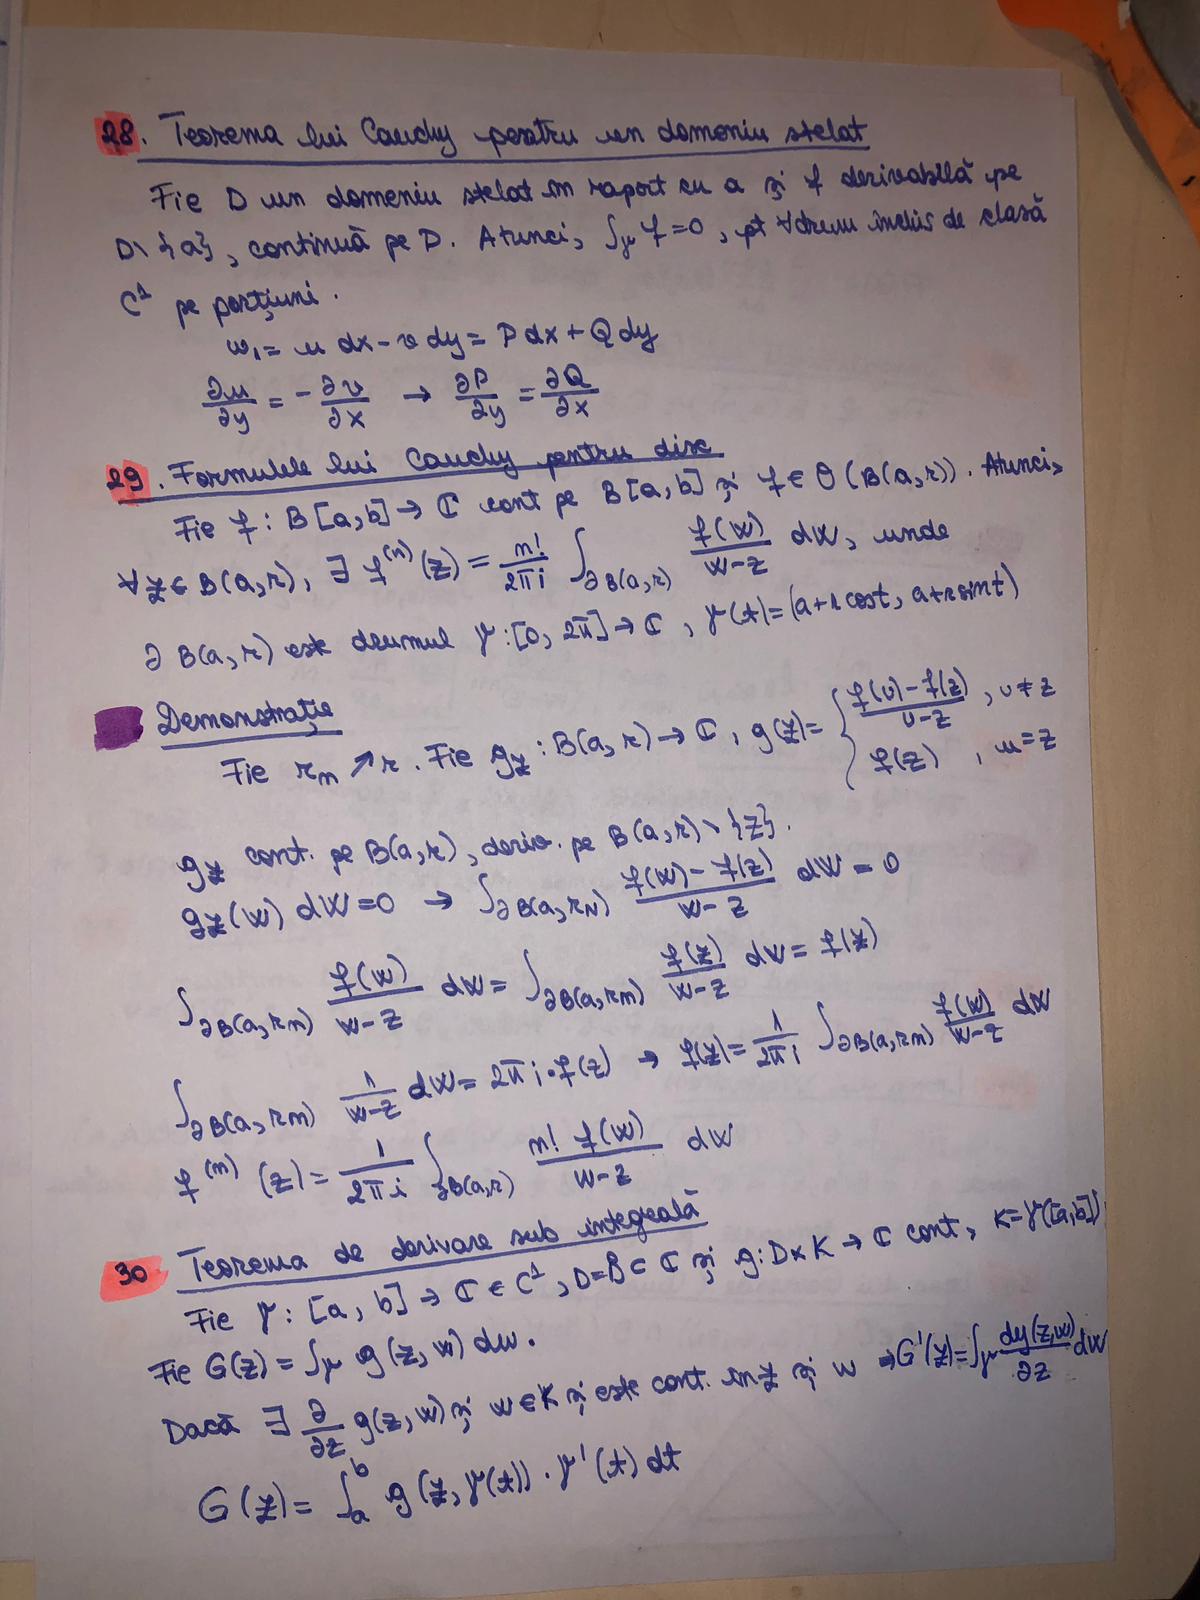 28. Teorema lui Cauchy pentru un domeniu stelat
Fie D un domeniu stelat în raport cu a și f derivabilă pe
D\{a}, continuă pe D. Atunci, ∫_γ f=0, pt ∀ drum închis de clasă
C¹ pe porțiuni.
w₁= u dx - v dy = P dx + Q dy
∂u/∂y = - ∂v/∂x → ∂P/∂y = ∂Q/∂x
29. Formulele lui Cauchy pentru disc
Fie f: B[a,b] → ℂ cont pe B[a,b] și f ∈ O(B(a,r)). Atunci,
∀z∈B(a,r), ∃ f^(n)(z) = n!/2πi ∫_∂B(a,r) f(w)/w-z dw, unde
∂B(a,r) este drumul γ:[0, 2π]→ℂ, γ(t)=(a+r cost, a+r sint)
Demonstrație
Fie r_n ↗ r. Fie g_z : B(a,r)→ℂ, g(z)= { f(u)-f(z)/u-z , u≠z
f(z) , u=z
g_z cont. pe B(a,r), deriv. pe B(a,r)\{z}.
g_z(w) dw=0 → ∫_∂B(a,rn) f(w)-f(z)/w-z dw = 0
∫_∂B(a,rn) f(w)/w-z dw = ∫_∂B(a,rn) f(z)/w-z dw = f(z)
∫_∂B(a,rn) 1/w-z dw = 2πi·f(z) → f(z) = 1/2πi ∫_∂B(a,rn) f(w)/w-z dw
f^(n)(z) = 1/2πi ∫_∂B(a,r) n! f(w)/w-z dw
30 Teorema de derivare sub integrală
Fie γ: [a,b] → ℂ ∈ C¹, D=B⊂ℂ și g: D×K → ℂ cont, K=γ([a,b])
Fie G(z) = ∫_γ g(z,w) dw.
Dacă ∃ ∂/∂z g(z,w) și w∈K și este cont. în z și w ⇒ G'(z)=∫_γ dy(z,w)/∂z dw
G(z) = ∫_a^b g(z,γ(t)) · γ'(t) dt